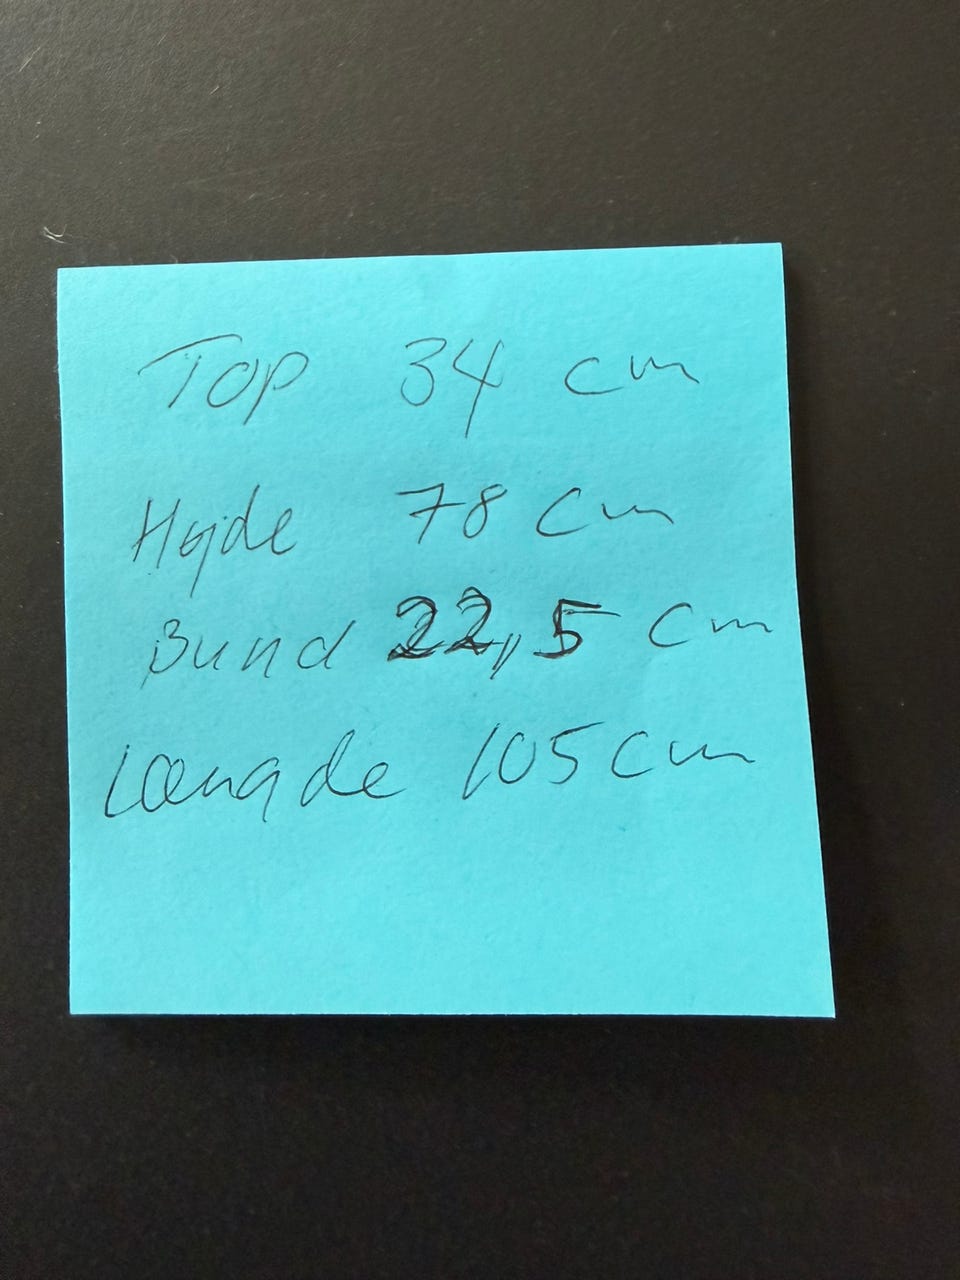 Top 34 cm
Højde 78 cm
Bund 22,5 cm
Længde 105 cm